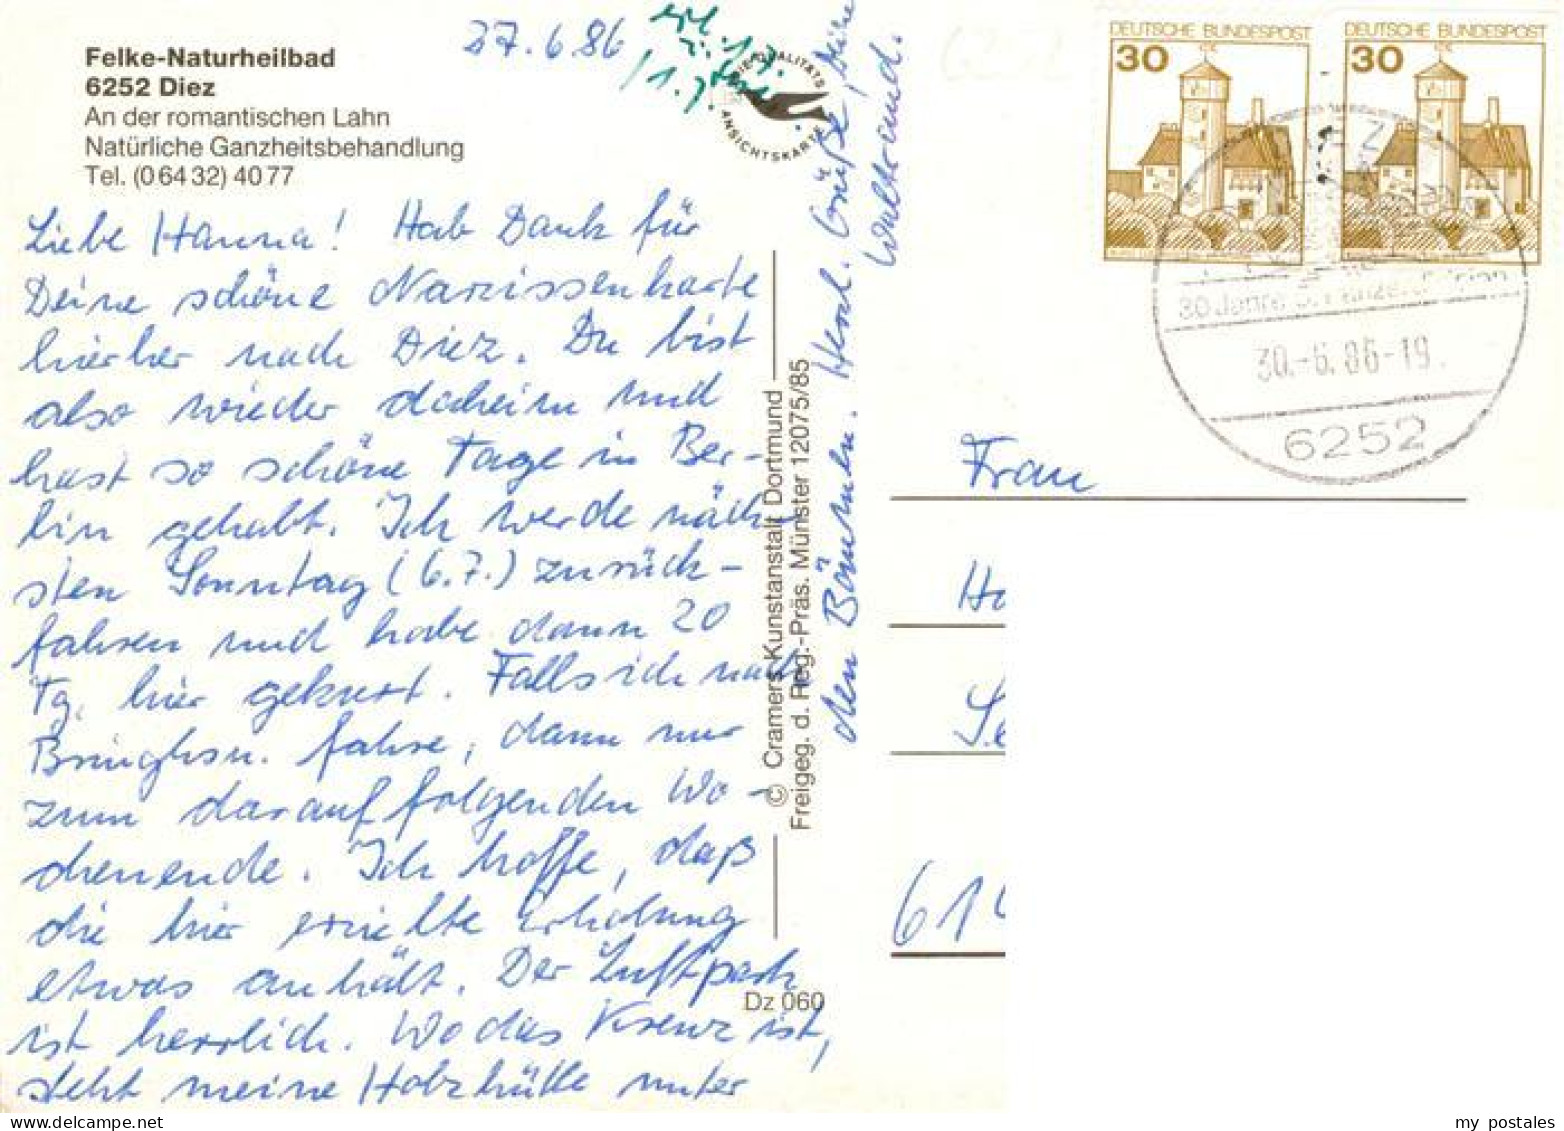 Felke-Naturheilbad
6252 Diez
An der romantischen Lahn
Natürliche Ganzheitsbehandlung
Tel. (0 64 32) 40 77
27.6.86
QUALITÄTS
ANSICHTSKARTE
Liebe Hanna! Hab Dank für
Deine schöne Narzissenkarte
hierher nach Diez. Du bist
also wieder daheim und
hast so schöne Tage in Ber-
lin gehabt. Ich werde näch-
sten Sonntag (6.7.) zurück-
fahren und habe dann 20
Tg. hier gekurt. Falls ich nach
Bringhsn. fahre, dann nur
zum darauffolgenden Wo-
chenende. Ich hoffe, daß
die hier erzielte Erholung
etwas anhält. Der Luftpark
ist herrlich. Wo das Kreuz ist,
steht meine Holzhütte unter
den Bäumen. Herzl. Grüße, Deine
Waltraud.
© Cramers Kunstanstalt Dortmund
Freigeg. d. Reg.-Präs. Münster 12075/85
Dz 060
DEUTSCHE BUNDESPOST
30
DEUTSCHE BUNDESPOST
30
30 Jahre
30.-6.86-19
6252
Frau
my postales